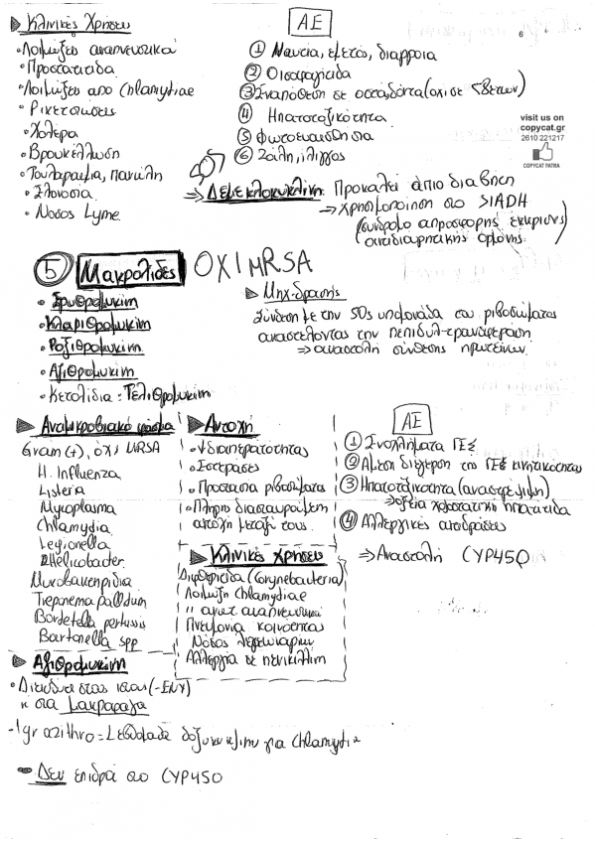 Κλινικές Χρήσεις
• Λοιμώξεις αναπνευστικά
• Προστατίτιδα
• Λοιμώξεις απο Chlamydiae
• Ρικετσιώσεις
• Χολέρα
• Βρουκέλλωση
• Τουλαραιμία, πανώλη
• Ελονοσία
• Νόσος Lyme
ΑΕ
① Ναυτία, εμετός, διάρροια
② Οισοφαγίτιδα
③ Εναπόθεση σε οστά, δόντια (όχι σε <8 ετων)
④ Ηπατοτοξικότητα
⑤ Φωτοευαισθησία
⑥ Ζάλη, ίλιγγος
6
visit us on
copycat.gr
2610 221217
COPYCAT PATRA
⇒ Δεμεκλοκυκλίνη: Προκαλεί άποιο διαβήτη
→ Χρησιμοποίηση στο SIADH
(σύνδρομο απρόσφορης έκκρισης
αντιδιουρητικής ορμόνης)
⑤ Μακρολίδες ΟΧΙ MRSA
• Ερυθρομυκίνη
• Κλαριθρομυκίνη
• Ροξιθρομυκίνη
• Αζιθρομυκίνη
• Κετολίδια: Τελιθρομυκίνη
Μηχ. δράσης
Σύνδεση με την 50s υπομονάδα του ριβοσώματος
αναστέλοντας την πεπιδυλ-τρανσφεράση
⇒ αναστολή σύνθεσης πρωτεϊνών
Αντιμικροβιακό φάσμα
Gram(+), όχι MRSA
H. Influenza
Listeria
Mycoplasma
Chlamydia
Legionella
Helicobacter
Μυκοβακτηρίδια
Treponema pallidum
Bordetella pertussis
Bartonella spp
Αντοχή
• ↓διαπερατότητας
• Εστεράσες
• Προστασία ριβοσώματος
• Πλήρη διασταυρούμενη
αντοχή μεταξύ τους
Κλινικές Χρήσεις
Διφθερίτιδα (Corynebacteria)
Λοίμωξη Chlamydiae
" αναπνευστικού
Πνευμονία κοινότητας
Νόσος λεγεωναρίων
Αλλεργία σε πενικιλίνη
ΑΕ
① Ενοχλήματα ΓΕΣ
② Άμεση διέγερση της ΓΕΣ κινητικότητας
③ Ηπατοτοξικότητα (αναστρέψιμη)
→ οξεία χολοστατική ηπατίτιδα
④ Αλλεργικές αποδράσεις
⇒ Αναστολή CYP450
Αζιθρομυκίνη
• Διεισδύει στους ιστους (-ΕΝΥ)
κ στα μακροφάγα
- 1gr azithro = 1 εβδομάδα δοξυκυκλίνη για Chlamydia
- Δεν επιδρά στο CYP450